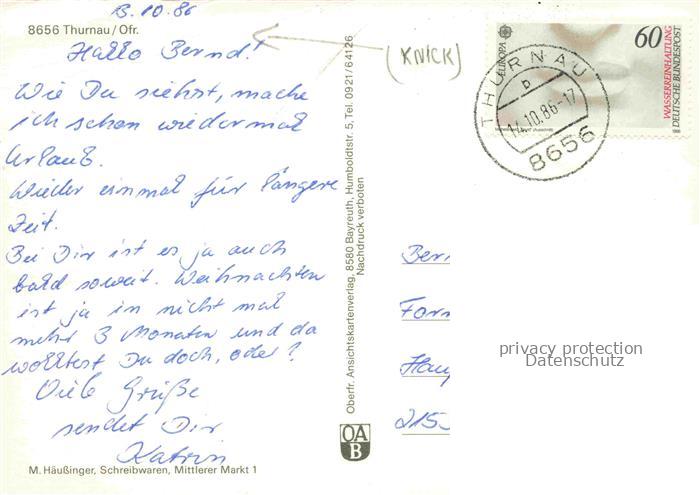 13.10.86
8656 Thurnau/Ofr.
Hallo Bernd!
(KNICK)
Wie Du siehst, mache
ich schon wiedermal
Urlaub.
Wieder einmal für längere
Zeit.
Bei Dir ist es ja auch
bald soweit. Weihnachten
ist ja in nicht mal
mehr 3 Monaten und da
wolltest Du doch, oder?
Viele Grüße
sendet Dir
Katrin
M. Häußinger, Schreibwaren, Mittlerer Markt 1
Oberfr. Ansichtskartenverlag, 8580 Bayreuth, Humboldtstr. 5, Tel. 0921/64126
Nachdruck verboten
OA
B
EUROPA
60
WASSERREINHALTUNG
DEUTSCHE BUNDESPOST
THURNAU
b
14.10.86-17
8656
Bern
Forn
Hau
215
privacy protection
Datenschutz